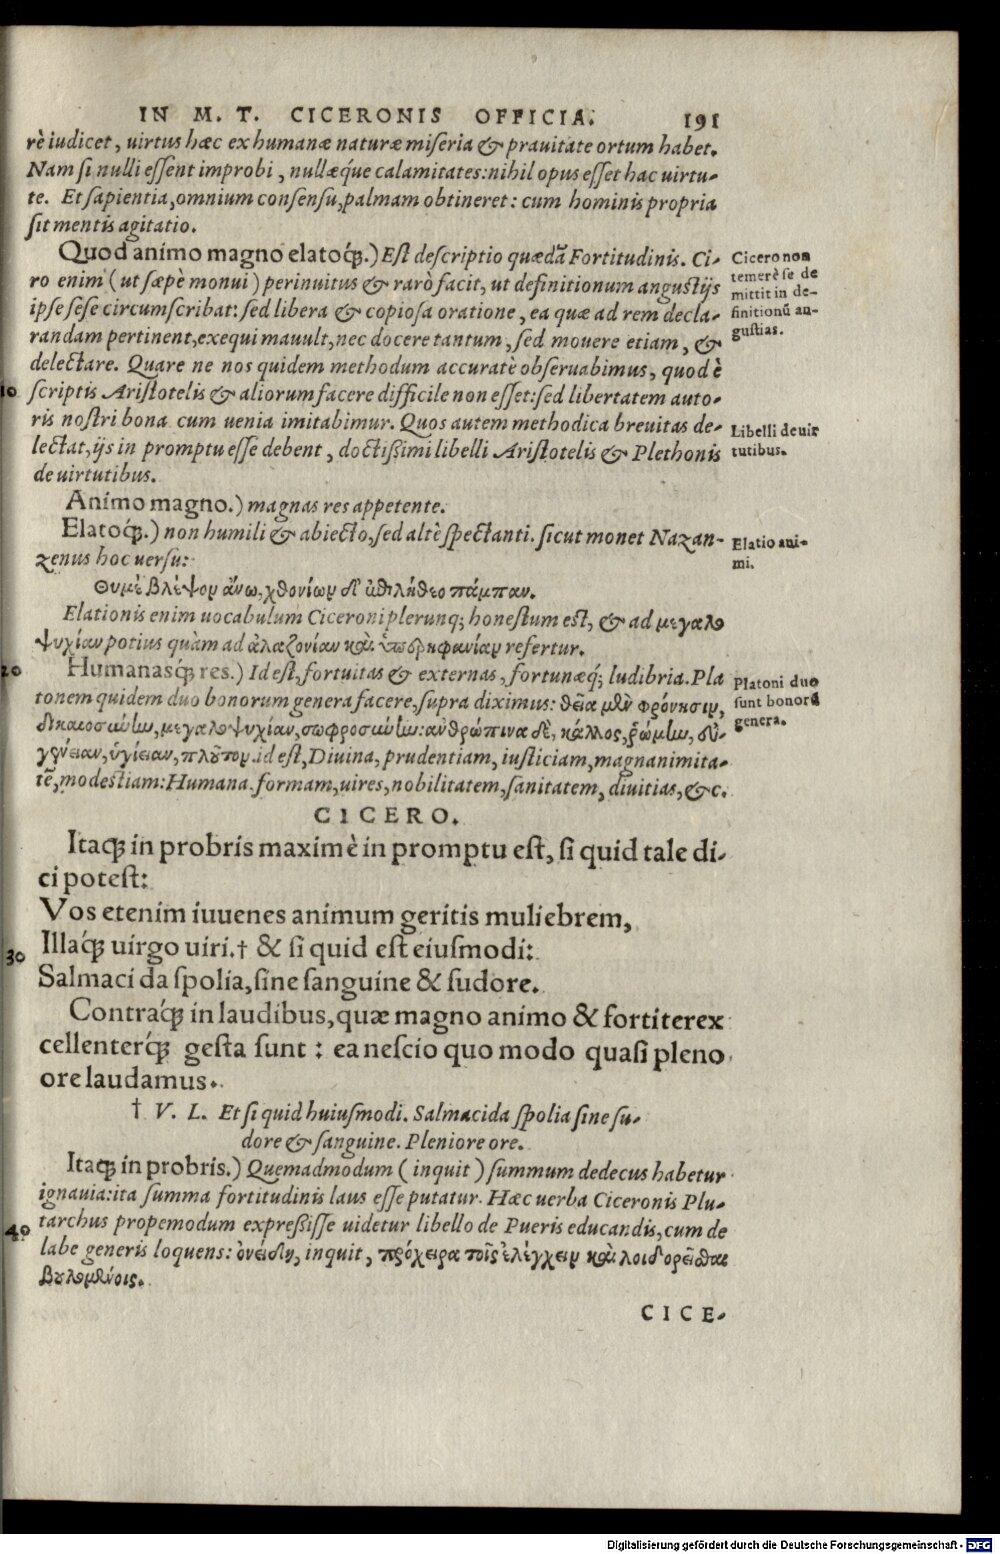 IN M. T. CICERONIS OFFICIA. 191
rè iudicet, uirtus hæc ex humanæ naturæ miseria & prauitate ortum habet.
Nam si nulli essent improbi, nullæque calamitates: nihil opus esset hac uirtu-
te. Et sapientia, omnium consensu, palmam obtineret: cum hominis propria
sit mentis agitatio.
Quod animo magno elatoq́;.) Est descriptio quædã Fortitudinis. Ci-
ro enim (ut sæpè monui) perinuitus & rarò facit, ut definitionum angustijs
ipse sese circumscribat: sed libera & copiosa oratione, ea quæ ad rem decla-
randam pertinent, exequi mauult, nec docere tantum, sed mouere etiam, &
delectare. Quare ne nos quidem methodum accuratè obseruabimus, quod è
10 scriptis Aristotelis & aliorum facere difficile non esset: sed libertatem auto-
ris nostri bona cum uenia imitabimur. Quos autem methodica breuitas de-
lectat, ijs in promptu esse debent, doctissimi libelli Aristotelis & Plethonis
de uirtutibus.
Cicero non
temerè se de
mittit in de-
finitionũ an-
gustias.
Libelli de uir
tutibus.
Animo magno.) magnas res appetente.
Elatoq́;.) non humili & abiecto, sed altè spectanti. sicut monet Nazan-
zenus hoc uersu:
Elatio ani-
mi.
Θυμὲ βλέψον ἄνω, χθονίων δ' ἐπιλήθεο πάμπαν.
Elationis enim uocabulum Ciceroni plerunq; honestum est, & ad μεγαλο
ψυχίαν potius quàm ad ἀλαζονίαν καὶ ὑπερηφανίαν refertur.
20 Humanasq́; res.) Id est, fortuitas & externas, fortunæq́; ludibria. Pla
tonem quidem duo bonorum genera facere, supra diximus: θεῖα μὲν φρόνησιν,
δικαιοσύνην, μεγαλοψυχίαν, σωφροσύνην: ἀνθρώπινα δὲ, κάλλος, ῥώμην, εὐ-
γένειαν, ὑγίειαν, πλοῦτον. id est, Diuina, prudentiam, iusticiam, magnanimita-
tẽ, modestiam: Humana. formam, uires, nobilitatem, sanitatem, diuitias, &c.
Platoni duo
sunt bonorũ
genera.
CICERO.
Itaq; in probris maximè in promptu est, si quid tale di-
ci potest:
Vos etenim iuuenes animum geritis muliebrem,
30 Illaq́; uirgo uiri.† & si quid est eiusmodi:
Salmaci da spolia, sine sanguine & sudore.
Contraq́; in laudibus, quæ magno animo & fortiter ex
cellenterq́; gesta sunt: ea nescio quo modo quasi pleno
ore laudamus.
† V. L. Et si quid huiusmodi. Salmacida spolia sine su-
dore & sanguine. Pleniore ore.
Itaq; in probris.) Quemadmodum (inquit) summum dedecus habetur
ignauia: ita summa fortitudinis laus esse putatur. Hæc uerba Ciceronis Plu-
40 tarchus propemodum expressisse uidetur libello de Pueris educandis, cum de
labe generis loquens: ὀνείδη, inquit, πρόχειρα τοῖς ἐλέγχειν καὶ λοιδορεῖσθαι
βουλομένοις.
CICE-
Digitalisierung gefördert durch die Deutsche Forschungsgemeinschaft - DFG